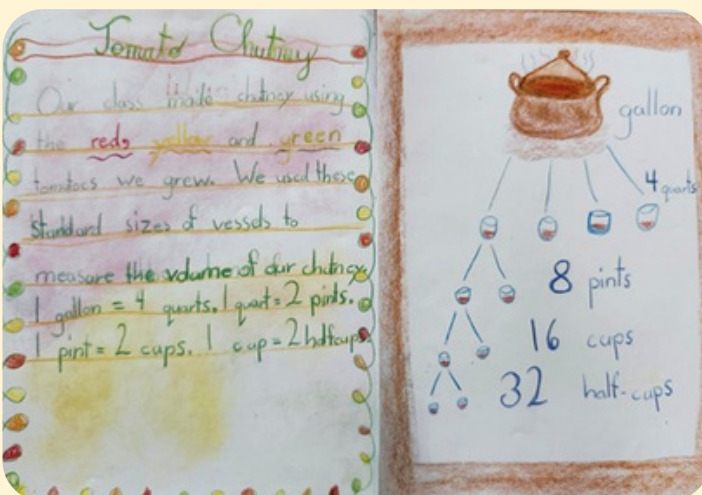 Tomato Chutney
Our class made chutney using
the red, yellow and green
tomatoes we grew. We used these
standard sizes of vessels to
measure the volume of our chutney.
1 gallon = 4 quarts. 1 quart = 2 pints.
1 pint = 2 cups. 1 cup = 2 halfcups.
gallon
4 quarts
8 pints
16 cups
32 half-cups